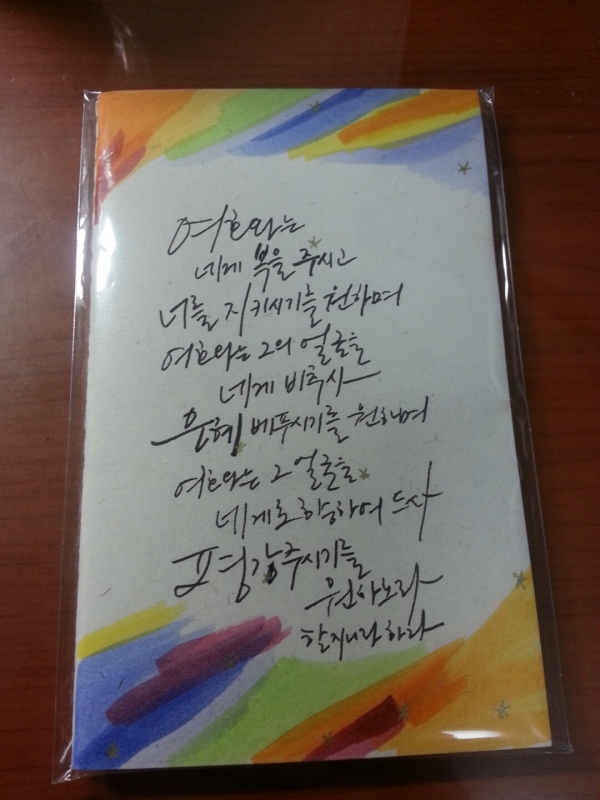 여호와는
네게 복을 주시고
너를 지키시기를 원하며
여호와는 그의 얼굴을
네게 비추사
은혜 베푸시기를 원하며
여호와는 그 얼굴을
네게로 향하여 드사
평강 주시기를
원하노라
할지니라 하라